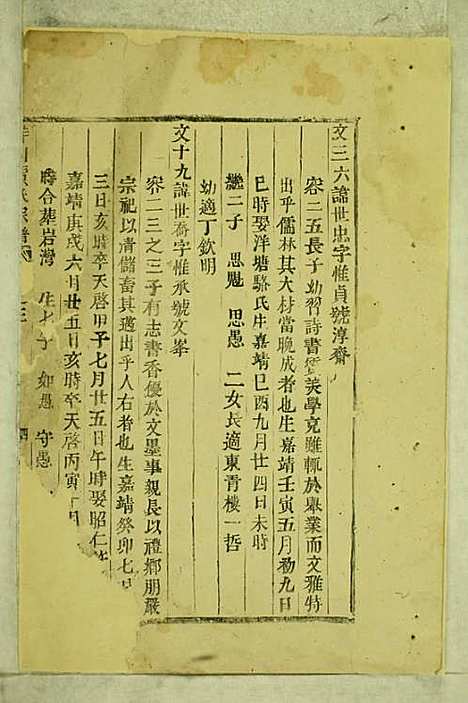 文三六諱世忠字惟貞號淳齋
容二五長子幼習詩書美學竟雖輒於舉業而文雅特
出乎儒林其大材當晚成者也生嘉靖壬寅五月初九日
巳時娶洋塘駱氏生嘉靖巳酉九月廿四日未時
二子 思魁 思愚 二女長適東青樓一哲
幼適丁欽明
文十九諱世喬字惟承號文峯
容二三之三子有志書香優於文墨事親長以禮鄉朋嚴
宗祀以清儲畜其邁出乎人右者也生嘉靖癸卯七月
三日亥時卒天啓甲子七月廿五日午時娶昭仁
嘉靖庚戌六月廿五日亥時卒天啓丙寅十月
時合塟岩灣 生 子 如愚 守愚